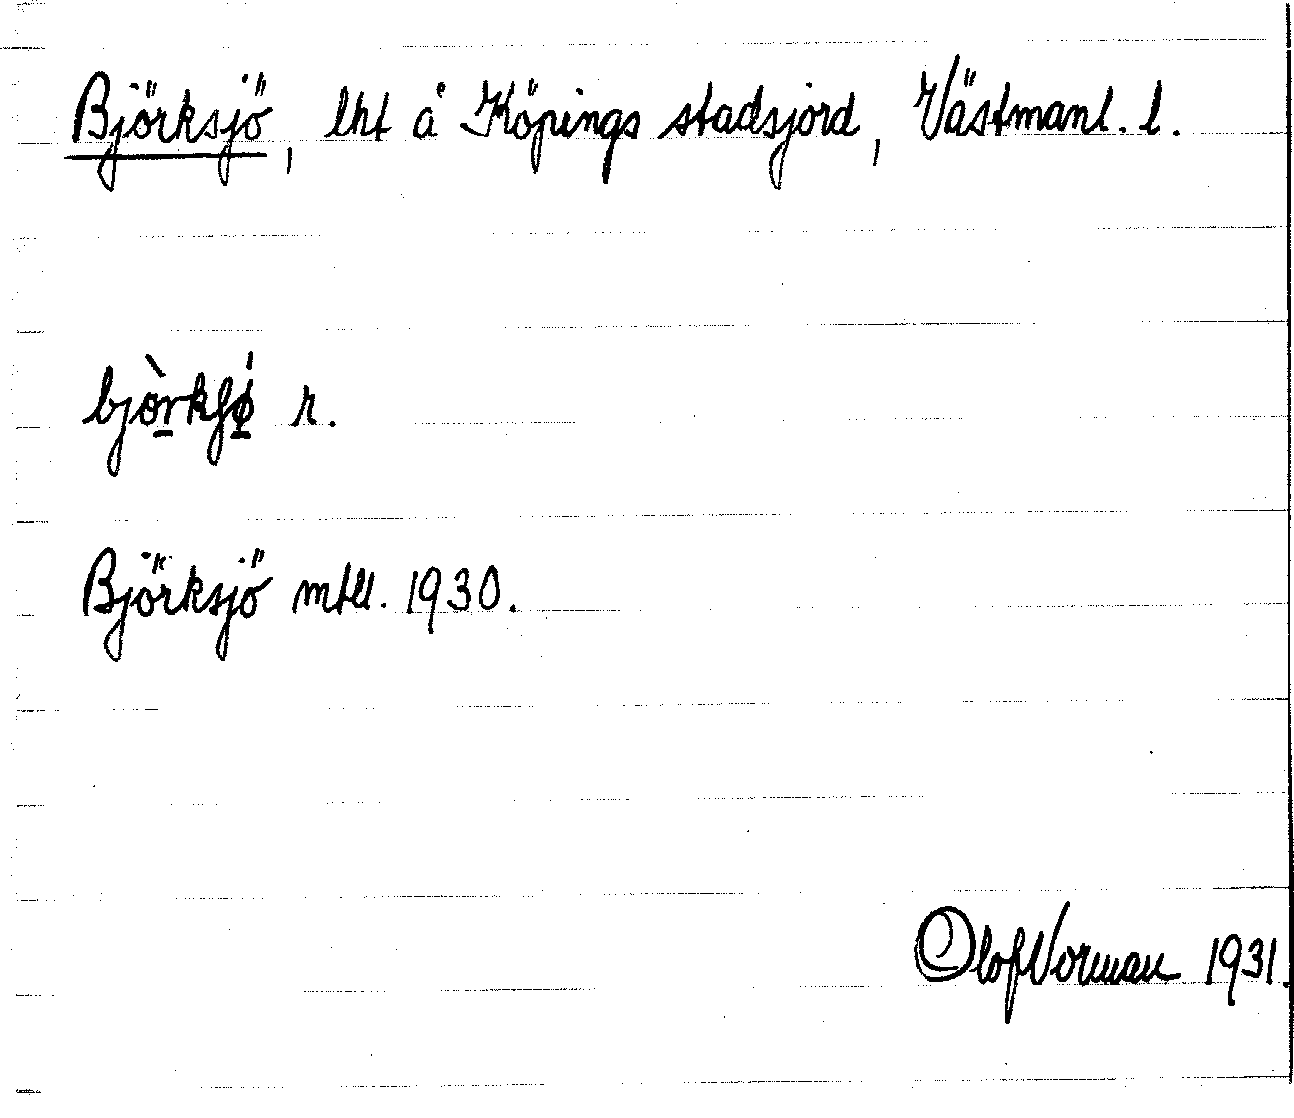 Björksjö, lht å Köpings stadsjord, Västmanl. l.
r.
Björksjö mtll. 1930.
Olof Norman 1931.